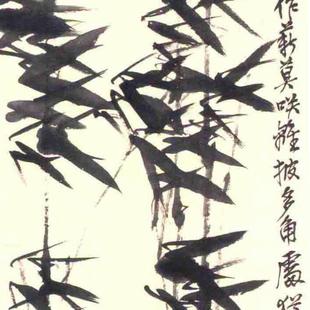 作薪莫咲離披多角處猶